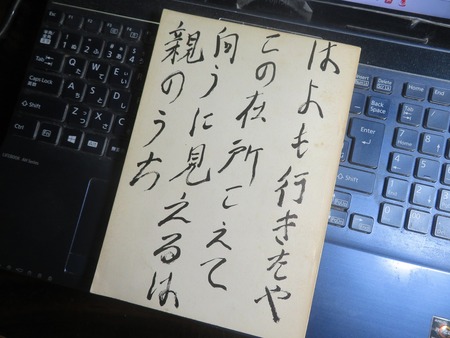 はよも行きたや
この在所こえて
向うに見えるは
親のうち
Tab
Caps Lock
Shift
Ctrl
Q
W
E
A
S
D
Z
X
Insert
Delete
Home
Back Space
Enter
Shift